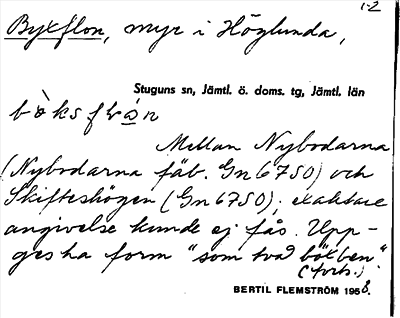 1-2
Byxflon, myr i Höglunda,
Stuguns sn, Jämtl. ö. doms. tg, Jämtl. län
bòksflo̲n
Mellan Nybodarna
(Nybodarna fäb. Gn 6750) och
Skifteshögen (Gn 6750); exaktare
angivelse kunde ej fås. Upp-
ges ha form "som två böxben"
(forts.)
BERTIL FLEMSTRÖM 1958.